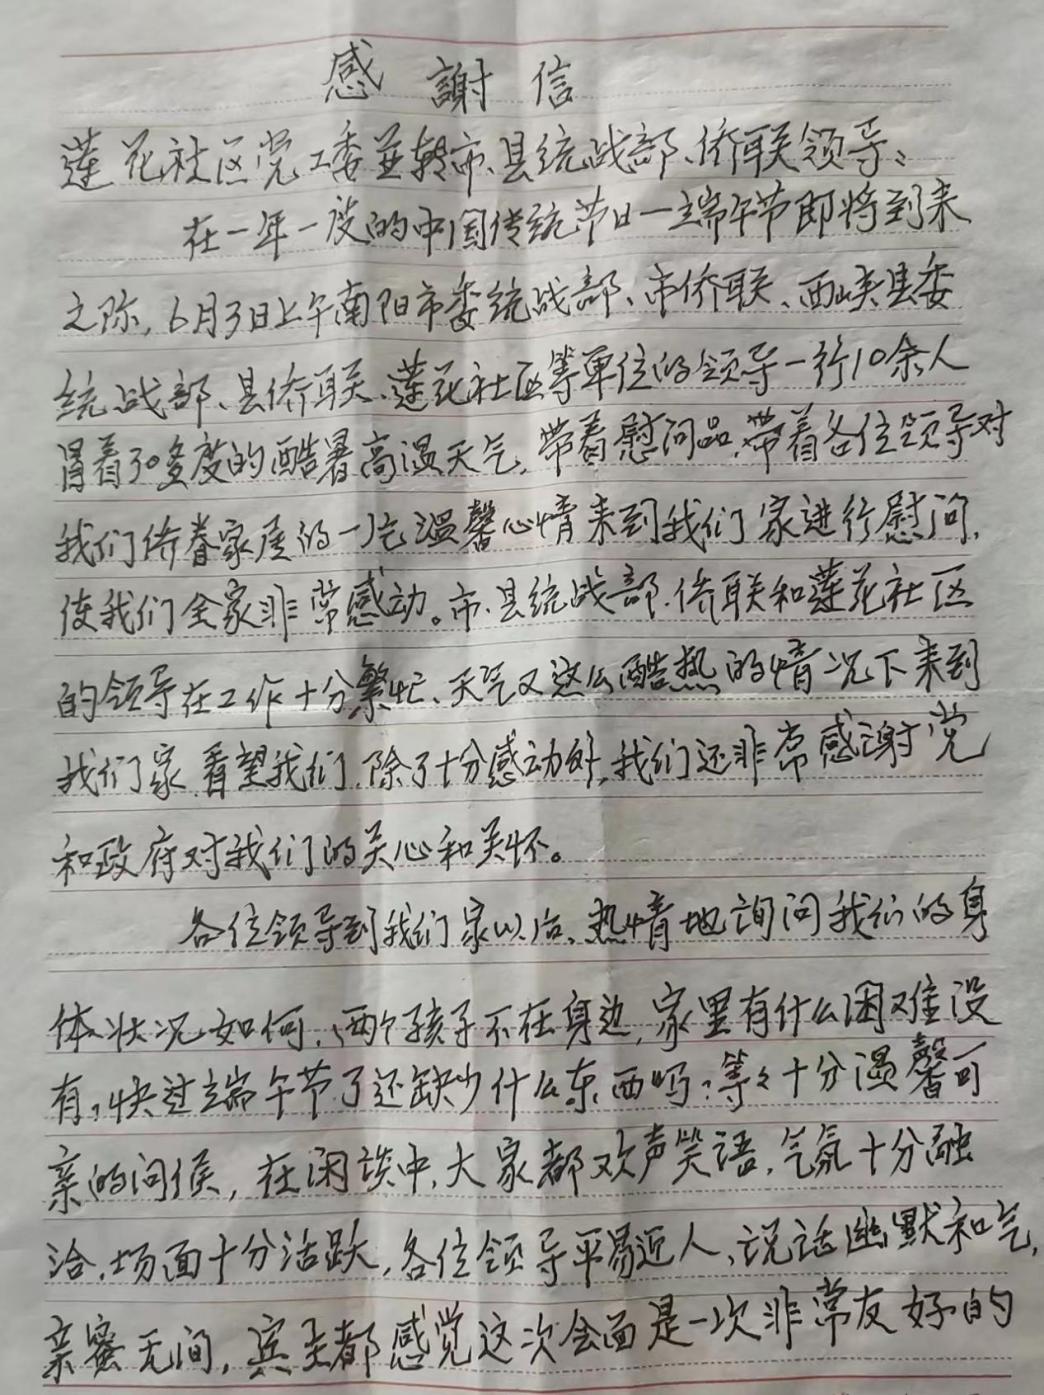 感謝信
莲花社区党工委並转市、县统战部、侨联领导:
在一年一度的中国传统节日一端午节即将到来
之际,6月3日上午南阳市委统战部、市侨联、西峡县委
统战部、县侨联、莲花社区等单位的领导一行10余人
冒着30多度的酷暑高温天气,带着慰问品,带着各位领导对
我们侨眷家属的一片温馨心情来到我们家进行慰问,
使我们全家非常感动。市、县统战部、侨联和莲花社区
的领导在工作十分繁忙、天气又这么酷热的情况下来到
我们家看望我们,除了十分感动外,我们还非常感谢党
和政府对我们的关心和关怀。
各位领导到我们家以后、热情地询问我们的身
体状况如何,两个孩子不在身边,家里有什么困难没
有,快过端午节了还缺少什么东西吗?等々十分温馨可
亲的问候,在闲谈中,大家都欢声笑语,气氛十分融
洽,场面十分活跃,各位领导平易近人、说话幽默和气,
亲蜜无间,宾主都感觉这次会面是一次非常友好的